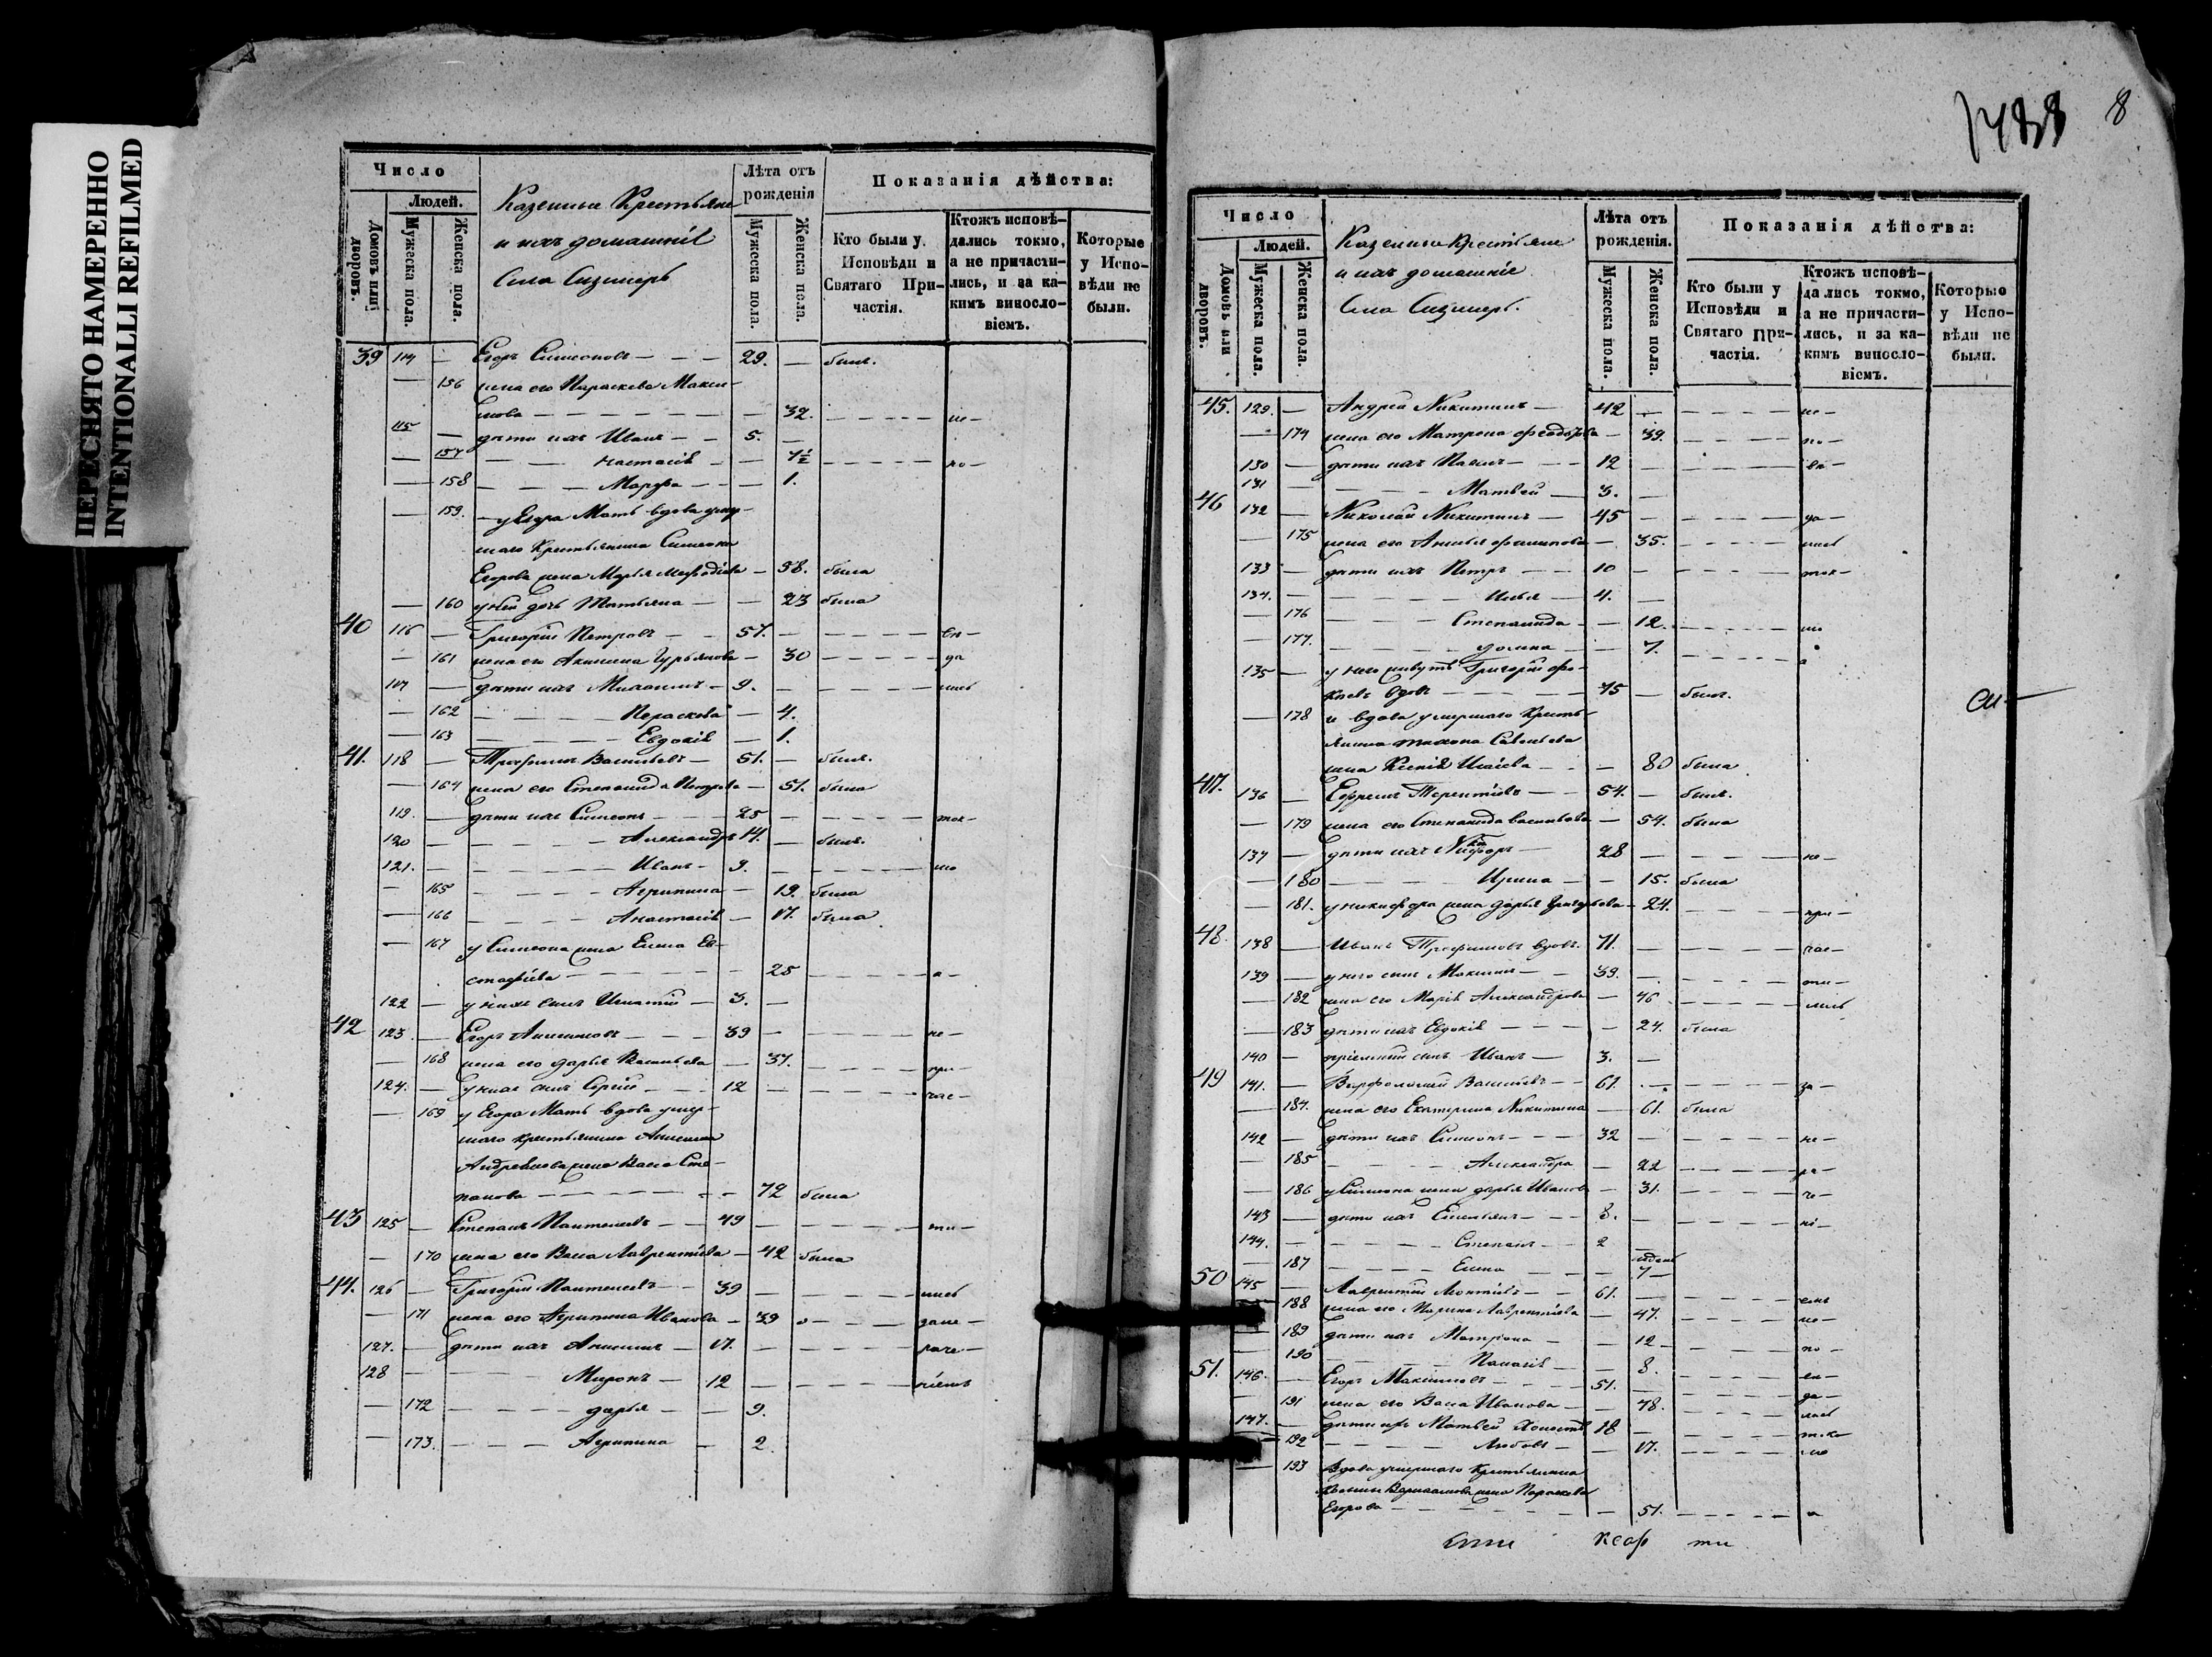 ПЕРЕСНЯТО НАМЕРЕННО
INTENTIONALLI REFILMED
Число
Людей.
Домовъ или дворовъ.
Мужеска пола.
Женска пола.
Казенные Крестьяне
и ихъ домашніе
Села
Лѣта отъ рожденія
Мужеска пола.
Женска пола.
Показанія дѣйства:
Кто были у Исповѣди и Святаго Причастія.
Ктожъ исповѣдались токмо, а не причастились, и за какимъ винословіемъ.
Которые у Исповѣди не были.
39 114 — Егоръ Симеоновъ — 29. — былъ.
— 156 жена его Параскева Макси-
мова — 32. — не —
115 — дѣти ихъ Иванъ — 5. —
— 157 — Настасія —
— 158 — Марфа — 1.
— 159. у Егора Мать вдова умер-
шаго Крестьянина Симеона
Егорова жена Марья Мефодіева — 58. была
— 160 у ней дочь Татьяна — 23 была
40 116 — Григорій Петровъ — 57. —
— 161 жена его Акилина Гурьянова — 30 — да
117 — дѣти ихъ — 9. — лись
— 162 — Параскева — 4.
— 163 — Евдокія — 1.
41. 118 — Трофимъ Васильевъ — 51. — былъ.
— 164 жена его Степанида Петрова — 51. была
119. — дѣти ихъ Симеонъ — 25 — ток —
120 — Александръ 14. — былъ.
121. — Иванъ — 9. — мо
— 165 — Агрипина — 19. была
— 166 — Анастасія — 17. была
— 167 у Симеона жена Елена Ев-
стафіева — 25 — а —
122 — у нихъ сынъ Игнатій — 3. —
42 123. — Егоръ Анисимовъ — 39 — не —
— 168 жена его Дарья Васильева — 37. — при —
124. — у нихъ сынъ Сергій — 12 — час —
— 169 у Егора Мать вдова умер-
шаго крестьянина Анисима
Андреянова жена Васса Сте-
панова — 72 была
43 125 — Степанъ Пантелеевъ — 49 — ти —
— 170 жена его Васса Лаврентіева — 42 была
44. 126 — Григорій Пантелеевъ — 39 — лись
— 171 жена его Агрипина Ивановна — 39 —
127. — дѣти ихъ Анисимъ — 17. —
128 — Миронъ — 12 — ніемъ
— 172 — Дарья — 9.
— 173. — Агрипина — 2.
8
Число
Людей.
Домовъ или дворовъ.
Мужеска пола.
Женска пола.
Казенные Крестьяне
и ихъ домашніе
Села
Лѣта отъ рожденія.
Мужеска пола.
Женска пола.
Показанія дѣйства:
Кто были у Исповѣди и Святаго Причастія.
Ктожъ исповѣдались токмо, а не причастились, и за какимъ винословіемъ.
Которые у Исповѣди не были.
45. 129. — Андрей Никитинъ — 42 — ис —
— 174 жена его Матрена Феодорова — 39. — по —
130 — дѣти ихъ Павелъ — 12 — вѣ —
131 — Матвей — 3. —
46 132 — Николай Никитинъ — 45 — да —
— 175 жена его Филипова — 35. — лись
133 — дѣти ихъ Петръ — 10 — ток —
134. — Илья — 4. —
— 176 — Степанида — 12. — мо
— 177. — Домна — 7. — а
135 — у него живутъ Григорій Фо-
кіевъ вдовъ — 75 — былъ.
— 178 и вдова умершаго Кресть-
янина Тихона Савельева
жена Ксенія Исаіева — 80 была
47. 136 — Ефремъ Терентіевъ — 54. — былъ.
— 179 жена его Степанида Васильева — 54. была
137 — дѣти ихъ Никифоръ — 28 — не —
— 180 — Ирина — 15. была
— 181. у Никифора жена Дарья Григорьева — 24. — при —
48. 138 — Иванъ Трофимовъ вдовъ. 71. — час —
139 — у него сынъ Максимъ — 39. — ти —
— 182 жена его Марія Александрова — 46 — лись
— 183 дѣти ихъ Евдокія — 24. была
140 — пріемный сынъ Иванъ — 3. —
49 141. — Варфоломей Васильевъ — 61. — за —
— 184. жена его Екатерина Никитина — 61. была
142 — дѣти ихъ Симеонъ — 32 — не —
— 185 — Александра — 22 — ра —
— 186 у Симеона жена Дарья Иванова — 31. — че —
143 — дѣти ихъ Емельянъ — 8. — ні —
144. — Степанъ — 2
— 187 — Елена —
50 145 — Лаврентій — 61. — емъ
— 188 жена его Марина Лаврентіева — 47. — ис —
— 189 дѣти ихъ Матрона — 12 — по —
— 190 — Пелагія — 8. — вѣ —
51. 146. — Егоръ Максимовъ — 51. — да —
— 191 жена его Васса Иванова — 48. — лись
147. — дѣти ихъ Матвей 18 — ток —
— 192 — Любовь — 17. — мо
— 193 Вдова умершаго Крестьянина
жена Параскева
Егорова — 51. — а